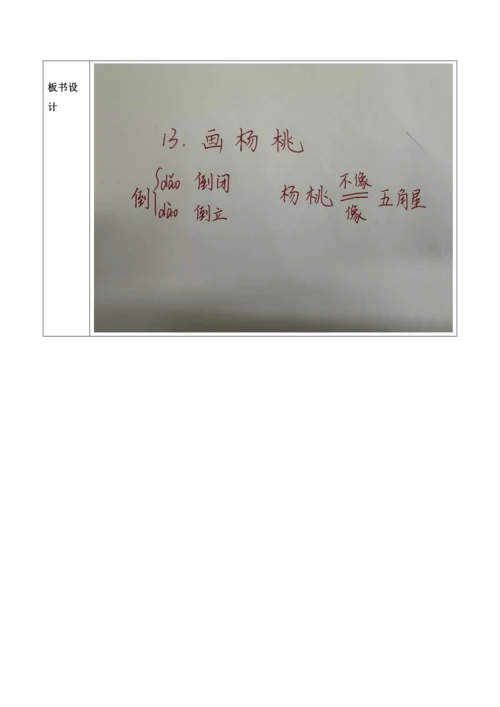 板书设
计
13. 画杨桃
倒 dǎo 倒闭
dào 倒立
杨桃 不像 像 五角星